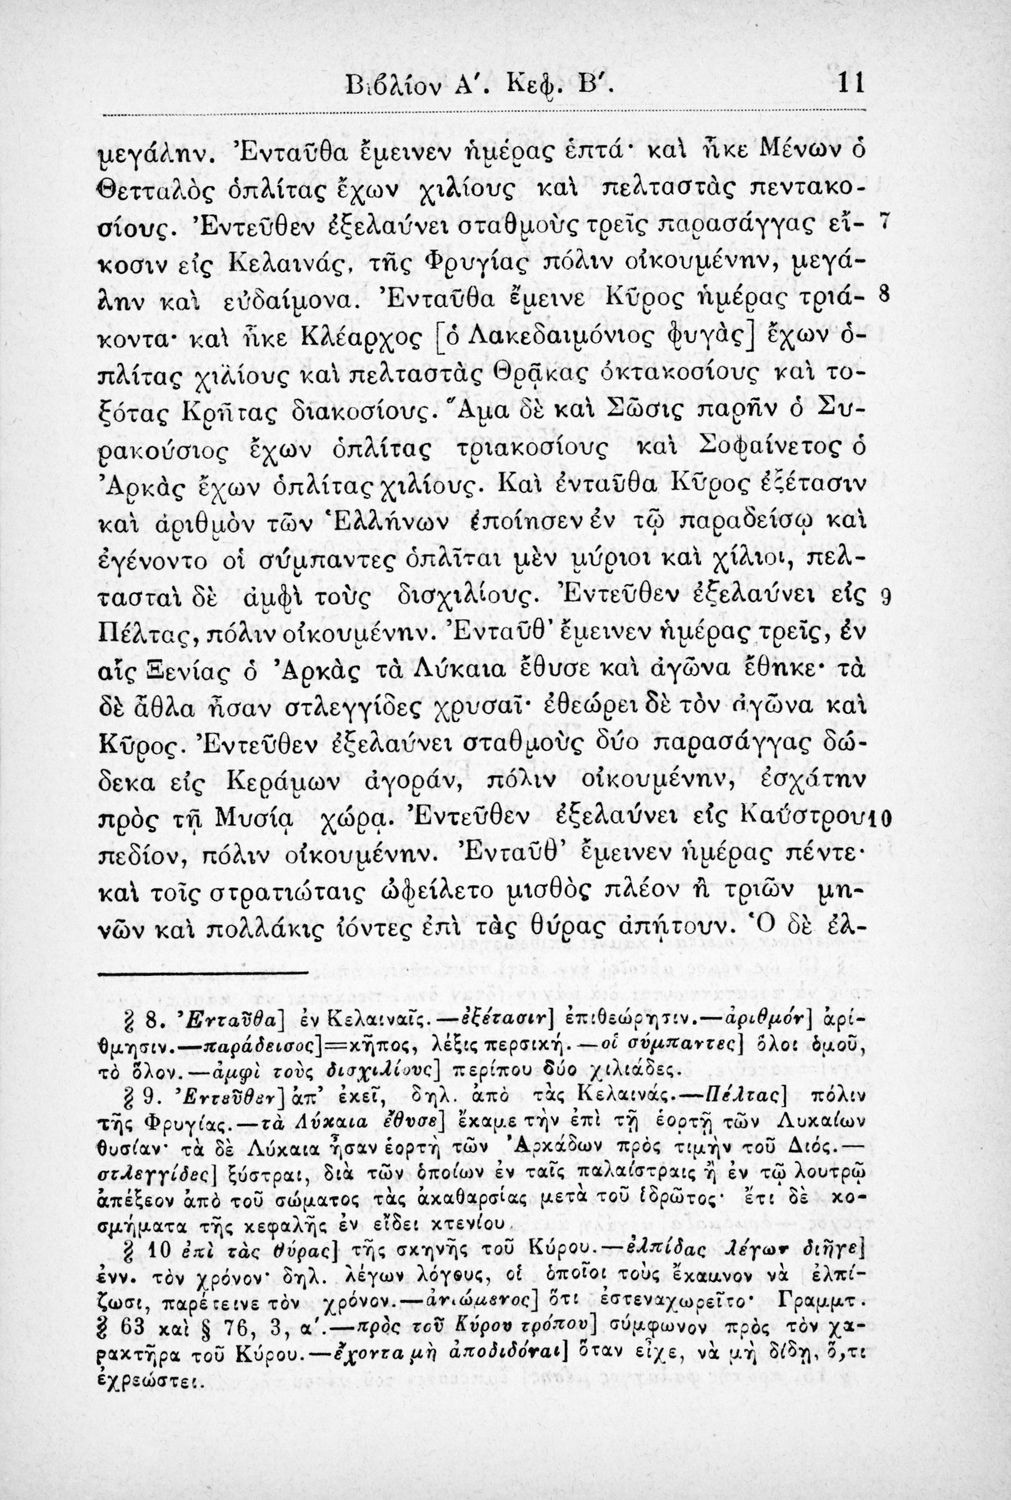 Βιβλίον Α΄. Κεφ. Β΄. 11
μεγάλην. Ἐνταῦθα ἔμεινεν ἡμέρας ἑπτά· καὶ ἧκε Μένων ὁ
Θετταλὸς ὁπλίτας ἔχων χιλίους καὶ πελταστὰς πεντακο-
σίους. Ἐντεῦθεν ἐξελαύνει σταθμοὺς τρεῖς παρασάγγας εἴ- 7
κοσιν εἰς Κελαινάς, τῆς Φρυγίας πόλιν οἰκουμένην, μεγά-
λην καὶ εὐδαίμονα. Ἐνταῦθα ἔμεινε Κῦρος ἡμέρας τριά- 8
κοντα· καὶ ἧκε Κλέαρχος [ὁ Λακεδαιμόνιος φυγὰς] ἔχων ὁ-
πλίτας χιλίους καὶ πελταστὰς Θρᾷκας ὀκτακοσίους καὶ το-
ξότας Κρῆτας διακοσίους. Ἅμα δὲ καὶ Σῶσις παρῆν ὁ Συ-
ρακούσιος ἔχων ὁπλίτας τριακοσίους καὶ Σοφαίνετος ὁ
Ἀρκὰς ἔχων ὁπλίτας χιλίους. Καὶ ἐνταῦθα Κῦρος ἐξέτασιν
καὶ ἀριθμὸν τῶν Ἑλλήνων ἐποίησεν ἐν τῷ παραδείσῳ καὶ
ἐγένοντο οἱ σύμπαντες ὁπλῖται μὲν μύριοι καὶ χίλιοι, πελ-
τασταὶ δὲ ἀμφὶ τοὺς δισχιλίους. Ἐντεῦθεν ἐξελαύνει εἰς 9
Πέλτας, πόλιν οἰκουμένην. Ἐνταῦθ' ἔμεινεν ἡμέρας τρεῖς, ἐν
αἷς Ξενίας ὁ Ἀρκὰς τὰ Λύκαια ἔθυσε καὶ ἀγῶνα ἔθηκε· τὰ
δὲ ἆθλα ἦσαν στλεγγίδες χρυσαῖ· ἐθεώρει δὲ τὸν ἀγῶνα καὶ
Κῦρος. Ἐντεῦθεν ἐξελαύνει σταθμοὺς δύο παρασάγγας δώ-
δεκα εἰς Κεράμων ἀγοράν, πόλιν οἰκουμένην, ἐσχάτην
πρὸς τῇ Μυσίᾳ χώρᾳ. Ἐντεῦθεν ἐξελαύνει εἰς Καΰστρου 10
πεδίον, πόλιν οἰκουμένην. Ἐνταῦθ' ἔμεινεν ἡμέρας πέντε·
καὶ τοῖς στρατιώταις ὠφείλετο μισθὸς πλέον ἢ τριῶν μη-
νῶν καὶ πολλάκις ἰόντες ἐπὶ τὰς θύρας ἀπῄτουν. Ὁ δὲ ἐλ-
§ 8. Ἐνταῦθα] ἐν Κελαιναῖς.—ἐξέτασιν] ἐπιθεώρησιν.—ἀριθμόν] ἀρί-
θμησιν.—παράδεισος]=κῆπος, λέξις περσική.—οἱ σύμπαντες] ὅλοι ὁμοῦ,
τὸ ὅλον.—ἀμφὶ τοὺς δισχιλίους] περίπου δύο χιλιάδες.
§ 9. Ἐντεῦθεν] ἀπ' ἐκεῖ, δηλ. ἀπὸ τὰς Κελαινάς.—Πέλτας] πόλιν
τῆς Φρυγίας.—τὰ Λύκαια ἔθυσε] ἔκαμε τὴν ἐπὶ τῇ ἑορτῇ τῶν Λυκαίων
θυσίαν· τὰ δὲ Λύκαια ἦσαν ἑορτὴ τῶν Ἀρκάδων πρὸς τιμὴν τοῦ Διός.—
στλεγγίδες] ξύστραι, διὰ τῶν ὁποίων ἐν ταῖς παλαίστραις ἢ ἐν τῷ λουτρῷ
ἀπέξεον ἀπὸ τοῦ σώματος τὰς ἀκαθαρσίας μετὰ τοῦ ἱδρῶτος· ἔτι δὲ κο-
σμήματα τῆς κεφαλῆς ἐν εἴδει κτενίου.
§ 10 ἐπὶ τὰς θύρας] τῆς σκηνῆς τοῦ Κύρου.—ἐλπίδας λέγων διῆγε]
ἐνν. τὸν χρόνον· δηλ. λέγων λόγους, οἱ ὁποῖοι τοὺς ἔκαμνον νὰ ἐλπί-
ζωσι, παρέτεινε τὸν χρόνον.—ἀνιώμενος] ὅτι ἐστεναχωρεῖτο· Γραμμτ.
§ 63 καὶ § 76, 3, α΄.—πρὸς τοῦ Κύρου τρόπου] σύμφωνον πρὸς τὸν χα-
ρακτῆρα τοῦ Κύρου.—ἔχοντα μὴ ἀποδιδόναι] ὅταν εἶχε, νὰ μὴ δίδῃ, ὅ,τι
ἐχρεώστει.